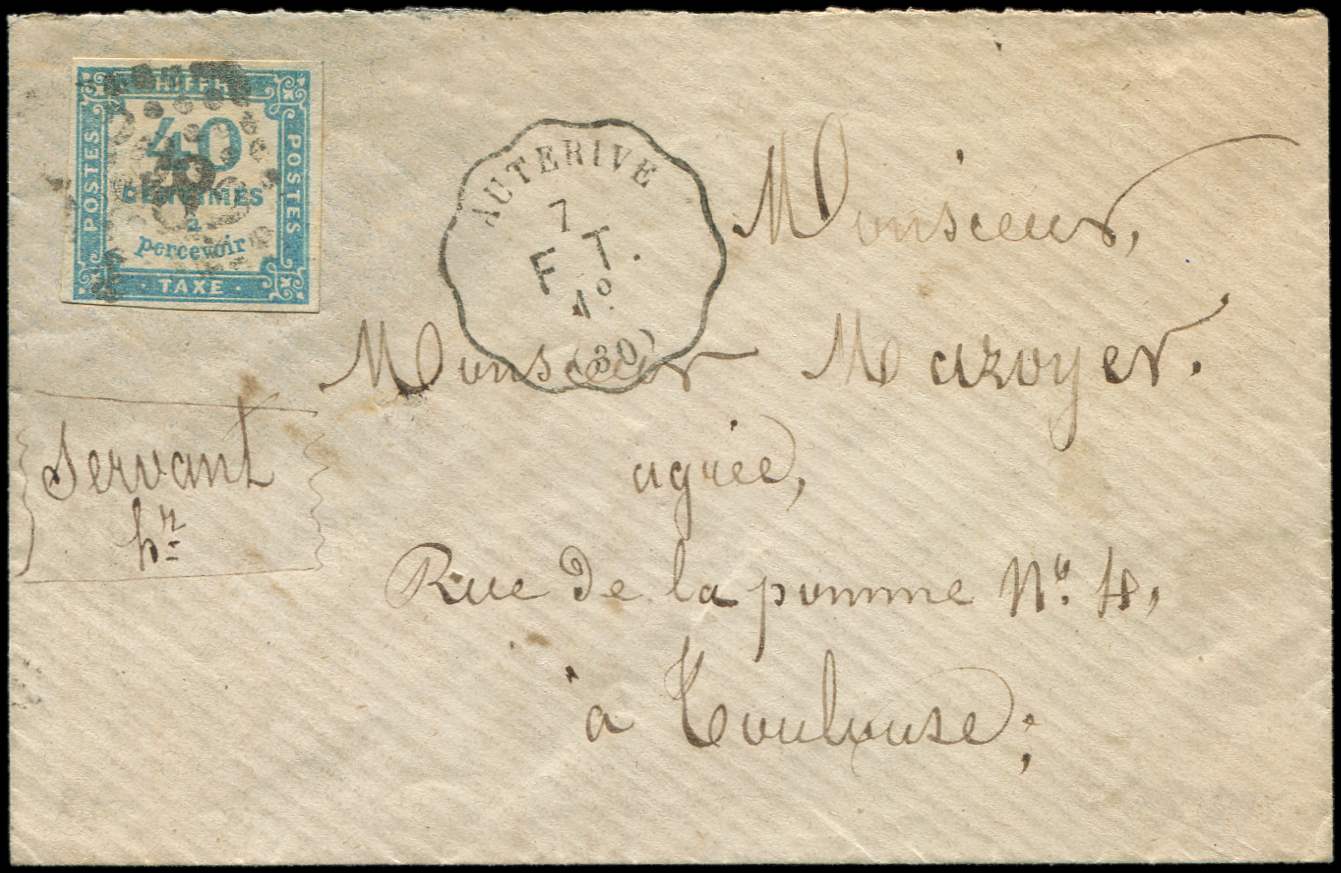 CHIFFRE
POSTES
40
CENTIMES
à
percevoir
POSTES
· TAXE ·
AUTERIVE
7
F. T.
1º
(30)
Monsieur,
Monsieur Mazoyer.
agréé,
Servant
hr
Rue de la pomme Nº 4,
à Toulouse;